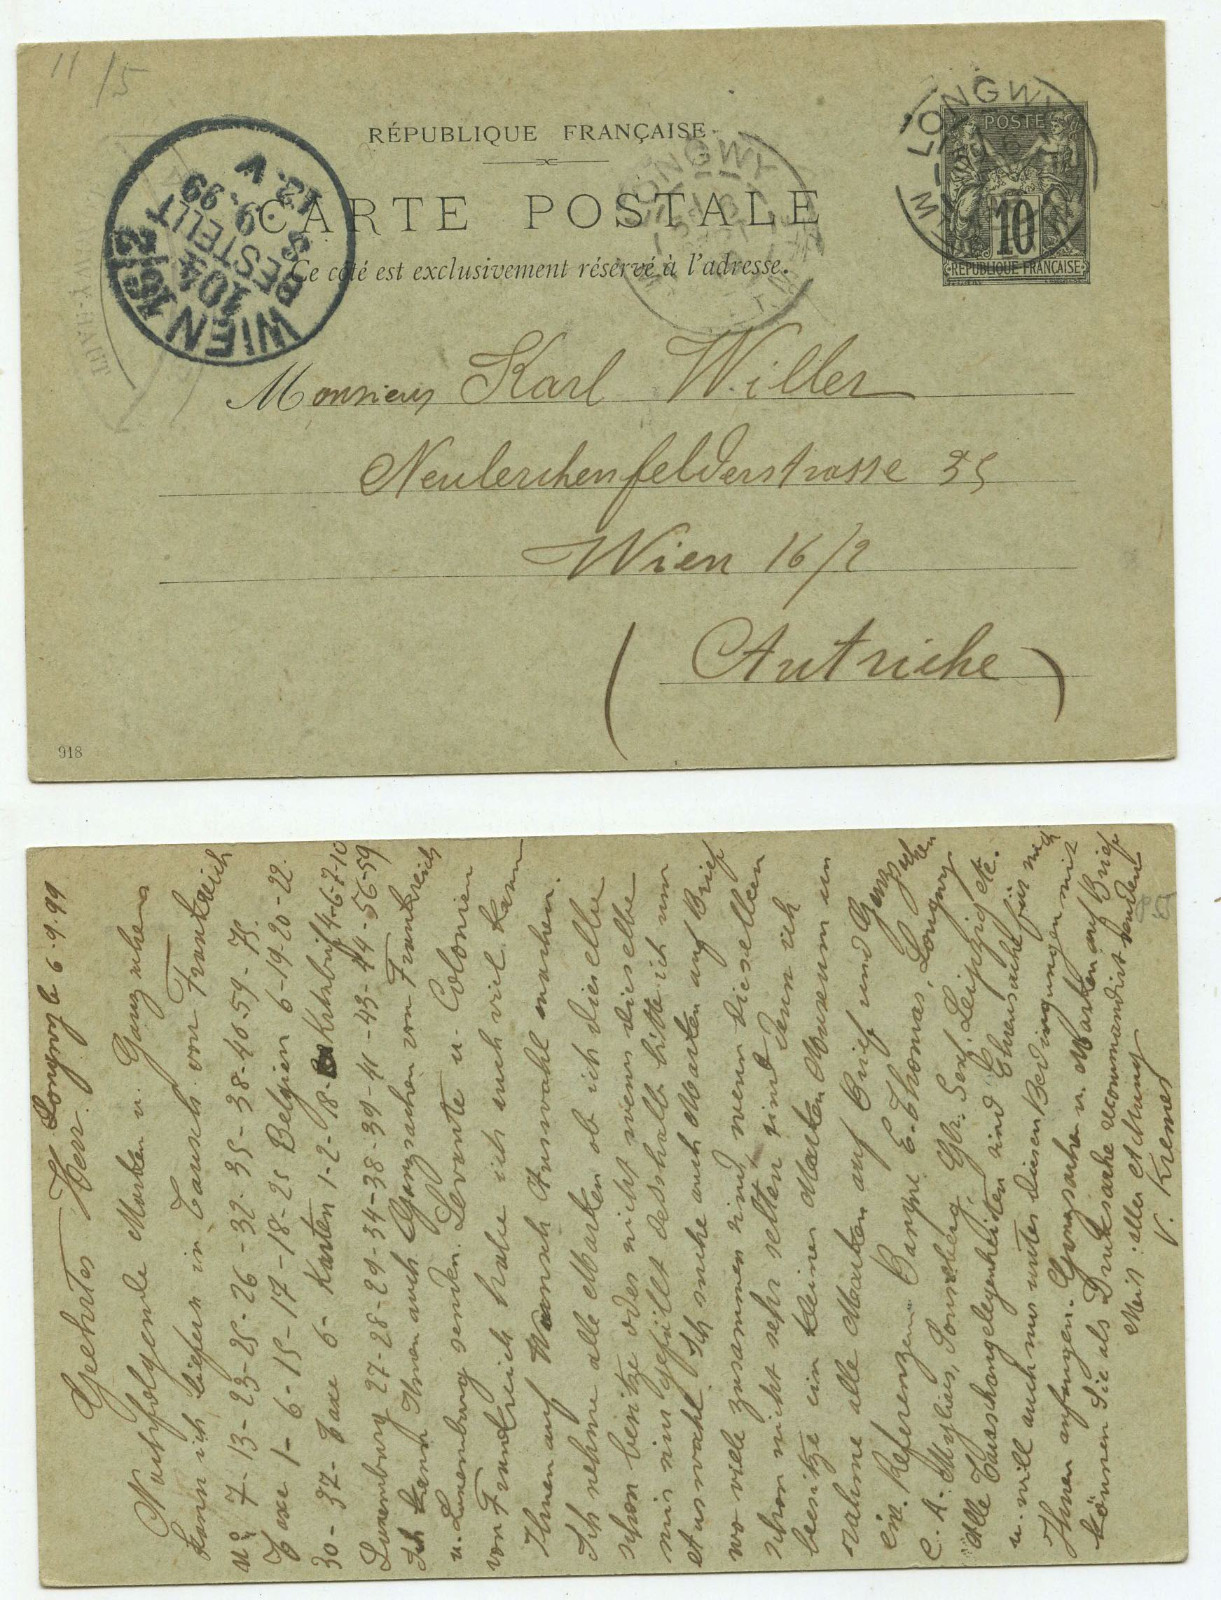 11/5
RÉPUBLIQUE FRANÇAISE
CARTE POSTALE
Ce côté est exclusivement réservé à l'adresse.
POSTE
10
RÉPUBLIQUE FRANÇAISE
LONGWY
LONGWY
WIEN 16/2
104
BESTELLT
8.9.99
12.V
Monsieur Karl Willer
Neulerchenfelderstrasse 35
Wien 16/2
(Autriche)
918
Longwy le 6.9.99
Geehrter Herr
Nachfolgende Marken u. Ganzsachen
kann ich liefern in Tausch von Frankreich
No 7-13-23-25-26-32-35-38-40-59-75.
Taxe 1-6-15-17-18-25 Belgien 6-19-20-22
30-37- Taxe 6- Karten 1-2-18- Krtbrief 4-6-7-10
Luxemburg 27-28-29-34-38-39-41-43-44-56-59
Ich kann Ihnen auch Ganzsachen von Frankreich
u. Luxemburg senden. Levante u. Colonien
von Frankreich habe ich auch viel kann
Ihnen auf Wunsch Auswahl machen.
Ich nehme alle Marken ob ich dieselbe
schon besitze oder nicht wenn dieselbe
mir nur gefällt desshalb bitte ich um
etwas Ich suche auch Marken auf Brief
wo viele zusammen sind, wenn dieselben
schon nicht sehr selten sind denn ich
besitze ein kleines Marken Museum u
nehme alle Marken auf Brief und Ganzsachen
Referenzen Barpre E. Thomas, Longwy
C. A. Mylius, Sonneberg, Gbr. Senf. Leipzig etc.
Alle Tauschangelegenheiten sind Ehrensache für mich
u. will auch nur unter diesen Bedingungen mit
Ihnen anfangen. Ganzsachen u. Marken auf Brief
können Sie als Drucksache recommandirt senden
Mit aller Achtung
V. Kremer